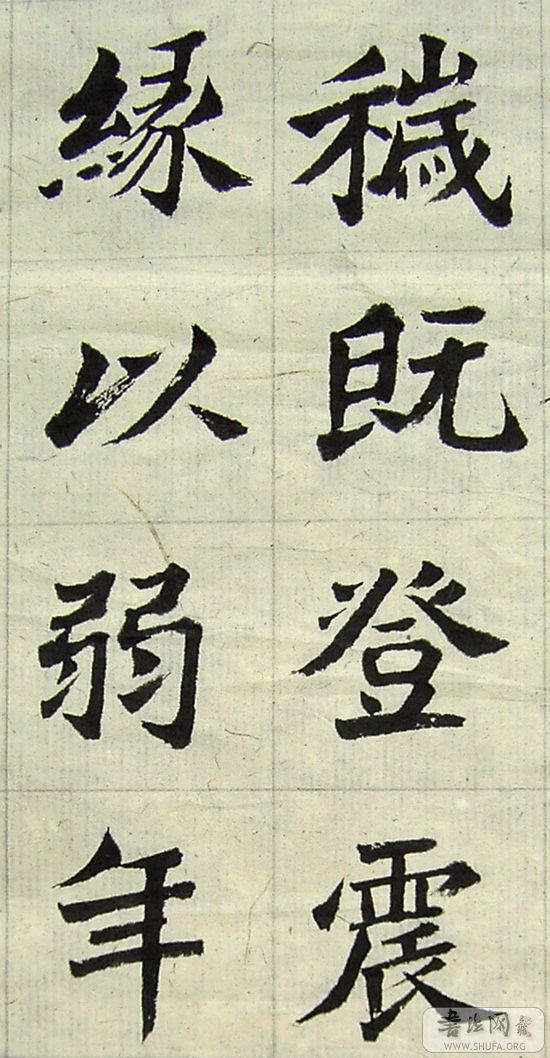 穢既登震
緣以弱年
書法网
WWW.SHUFA.ORG